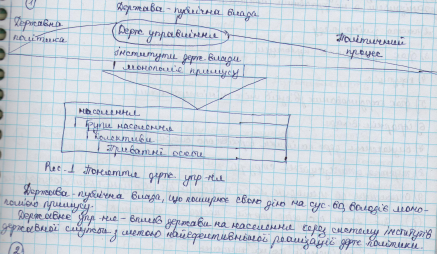 ①
Держава - публічна влада
Державна політика
Держ управління
Політичний процес
інститути держ влади
монополіє примусу
населення
Групи населення
Колективи
Приватні особи
Рис. 1 Поняття держ. упр-ня
Держава - публічна влада, що поширює свою дію на сус-во володіє моно-
полією примусу.
Державне упр-ня - вплив держави на населення через систему інститутів
державної служби з метою найефективнішої реалізації держ політики.
②